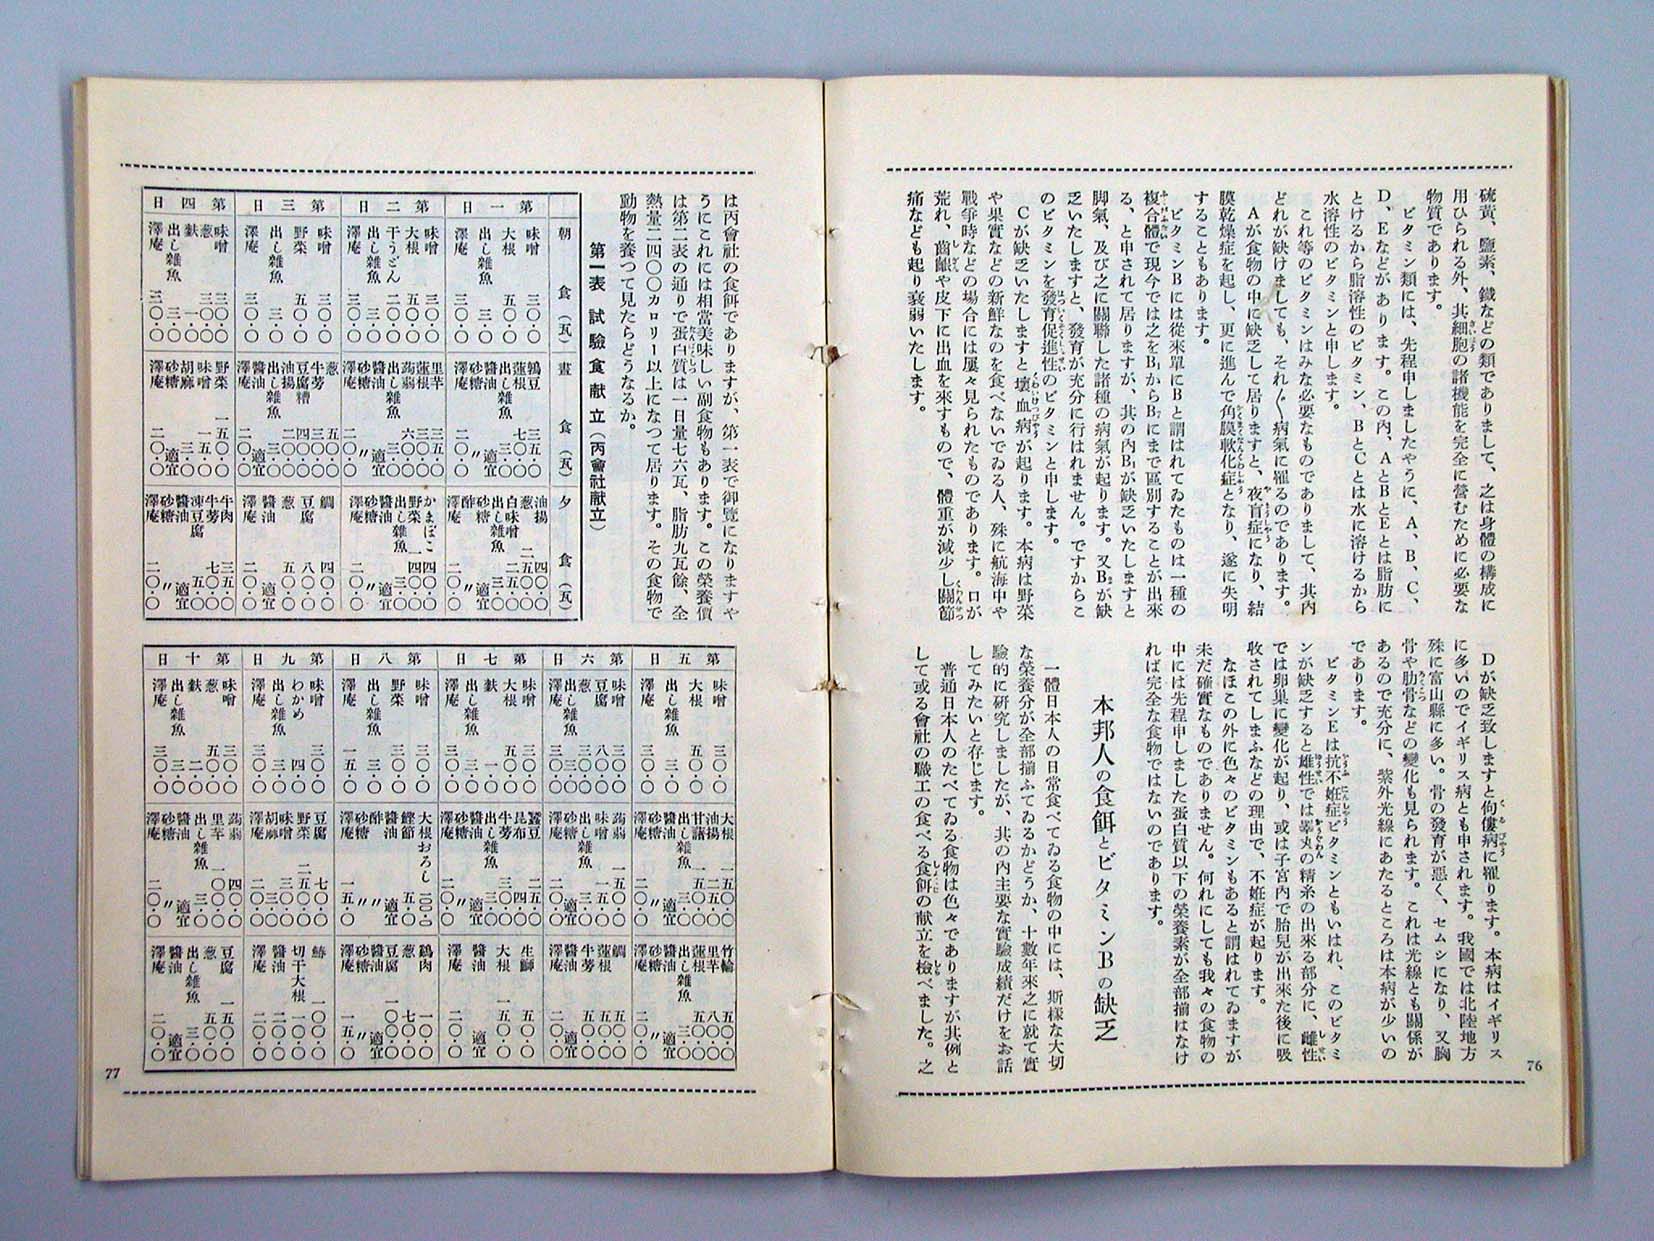 硫黄、鹽素、鐵などの類でありまして、之は身體の構成に
用ひられる外、其細胞の諸機能を完全に營むために必要な
物質であります。
ビタミン類には、先程申しましたやうに、A、B、C、
D、Eなどがあります。この内、AとDとEとは脂肪に
とけるから脂溶性のビタミン、BとCとは水に溶けるから
水溶性のビタミンと申します。
これ等のビタミンはみな必要なものでありまして、其内
どれが缺けましても、それ〴〵病氣に罹るのであります。
Aが食物の中に缺乏して居りますと、夜盲症になり、結
膜乾燥症を起し、更に進んで角膜軟化症となり、遂に失明
することもあります。
ビタミンBには從來單にBと謂はれてゐたものは一種の
複合體で現今では之をB₁からB₇にまで區別することが出來
る、と申されて居りますが、其の内B₁が缺乏いたしますと
脚氣、及び之に關聯した諸種の病氣が起ります。又B₂が缺
乏いたしますと、發育が充分に行はれません。ですからこ
のビタミンを發育促進性のビタミンと申します。
Cが缺乏いたしますと壞血病が起ります。本病は野菜
や果實などの新鮮なのを食べないでゐる人、殊に航海中や
戰爭時などの場合には屢々見られたものであります。口が
荒れ、齒齦や皮下に出血を來すもので、體重が減少し關節
痛なども起り衰弱いたします。
Dが缺乏致しますと佝僂病に罹ります。本病はイギリス
に多いのでイギリス病とも申されます。我國では北陸地方
殊に富山縣に多い。骨の發育が惡く、セムシになり、又胸
骨や肋骨などの變化も見られます。これは光線とも關係が
あるので充分に、紫外光線にあたるところは本病が少いの
であります。
ビタミンEは抗不姙症ビタミンともいはれ、このビタミ
ンが缺乏すると雄性では睾丸の精糸の出來る部分に、雌性
では卵巢に變化が起り、或は子宮内で胎兒が出來た後に吸
收されてしまふなどの理由で、不姙症が起ります。
なほこの外に色々のビタミンもあると謂はれてゐますが
未だ確實なものでありません。何れにしても我々の食物の
中には先程申しました蛋白質以下の榮養素が全部揃はなけ
れば完全な食物ではないのであります。
本邦人の食餌とビタミンBの缺乏
一體日本人の日常食べてゐる食物の中には、斯樣な大切
な榮養分が全部揃ふてゐるかどうか、十數年來之に就て實
驗的に硏究しましたが、其の内主要な實驗成績だけをお話
してみたいと存じます。
普通日本人のたべてゐる食物は色々でありますが其例と
して或る會社の職工の食べる食餌の献立を檢べました。之
76
は丙會社の食餌でありますが、第一表で御覽になりますや
うにこれには相當美味しい副食物もあります。この榮養價
は第二表の通りで蛋白質は一日量七六瓦、脂肪九瓦餘、全
熱量二四〇〇カロリー以上になつて居ります。その食物で
動物を養つて見たらどうなるか。
第一表 試驗食献立（丙會社献立）
朝食（瓦） 晝食（瓦） 夕食（瓦）
第一日
味噌 三〇・〇
大根 五〇・〇
出し雜魚 三・〇
澤庵 三〇・〇
鶉豆 三五・〇
蓮根 七〇・〇
出し雜魚 三・〇
醬油 適宜
砂糖 〃
澤庵 二〇・〇
油揚 四〇・〇
白味噌 二五・〇
出し雜魚 三・〇
砂糖 適宜
酢 〃
澤庵 二〇・〇
第二日
味噌 三〇・〇
大根 五〇・〇
干うどん 二〇・〇
出し雜魚 三・〇
澤庵 三〇・〇
里芋
蓮根
蒟蒻
出し雜魚 三・〇
醬油 適宜
砂糖 〃
澤庵 二〇・〇
かまぼこ 四〇・〇
野菜 一四〇・〇
出し雜魚 三・〇
醬油 適宜
砂糖 〃
澤庵 二〇・〇
第三日
味噌 三〇・〇
野菜 五〇・〇
出し雜魚 三・〇
澤庵 三〇・〇
葱 五〇・〇
牛蒡 三〇・〇
豆腐糟 四〇・〇
油揚 二・〇
出し雜魚 三・〇
醬油 適宜
澤庵 二〇・〇
鯛 四〇・〇
豆腐 八〇・〇
葱 五〇・〇
醬油 適宜
澤庵 二〇・〇
第四日
味噌 三〇・〇
葱 三〇・〇
麩 一・〇
出し雜魚 三・〇
澤庵 三〇・〇
野菜 一五〇・〇
味噌 一五・〇
胡麻 五・〇
砂糖 適宜
澤庵 二〇・〇
牛肉 三五・〇
牛蒡 七〇・〇
凍豆腐 五・〇
醬油 適宜
砂糖 〃
澤庵 二〇・〇
第五日
味噌 三〇・〇
大根 五〇・〇
出し雜魚 三・〇
澤庵 三〇・〇
大根 五〇・〇
油揚
甘藷 一五〇・〇
出し雜魚 三・〇
醬油 適宜
砂糖 〃
澤庵 二〇・〇
竹輪 五〇・〇
里芋 八〇・〇
蓮根 五〇・〇
出し雜魚 三・〇
醬油 適宜
砂糖 〃
澤庵 二〇・〇
第六日
味噌 三〇・〇
豆腐 八〇・〇
葱 二〇・〇
出し雜魚 三・〇
澤庵 三〇・〇
蒟蒻 五〇・〇
味噌 一五・〇
出し雜魚 三・〇
砂糖 適宜
澤庵 二〇・〇
鯛 五〇・〇
蓮根 五〇・〇
牛蒡 五〇・〇
醬油 適宜
澤庵 二〇・〇
第七日
味噌 三〇・〇
大根 五〇・〇
麩 一・〇
出し雜魚 三・〇
澤庵 三〇・〇
蠶豆 五〇・〇
昆布 四・〇
牛蒡 三〇・〇
出し雜魚 三・〇
醬油 適宜
砂糖 〃
澤庵 二〇・〇
生鰤 五〇・〇
大根 五〇・〇
醬油 適宜
澤庵 二〇・〇
第八日
味噌 三〇・〇
野菜 五〇・〇
出し雜魚 三・〇
澤庵 一五・〇
大根おろし 二〇〇・〇
鰹節 五・〇
醬油 適宜
酢 〃
砂糖 〃
澤庵 一五・〇
鷄肉 一〇・〇
葱 七〇・〇
豆腐 一〇〇・〇
醬油 適宜
砂糖 〃
澤庵 一五・〇
第九日
味噌 三〇・〇
わかめ 四・〇
出し雜魚 三・〇
澤庵 三〇・〇
豆腐 七〇・〇
野菜 二五・〇
味噌 三〇・〇
胡麻 三・〇
澤庵 二〇・〇
鰆 一〇〇・〇
切干大根 一〇・〇
醬油 適宜
澤庵 二〇・〇
第十日
味噌 三〇・〇
葱 五〇・〇
麩 二・〇
出し雜魚 三・〇
澤庵 三〇・〇
蒟蒻 四〇・〇
里芋 一〇〇・〇
出し雜魚 三・〇
醬油 適宜
砂糖 〃
澤庵 二〇・〇
豆腐 一五〇・〇
葱 五〇・〇
出し雜魚 三・〇
醬油 適宜
澤庵 二〇・〇
77